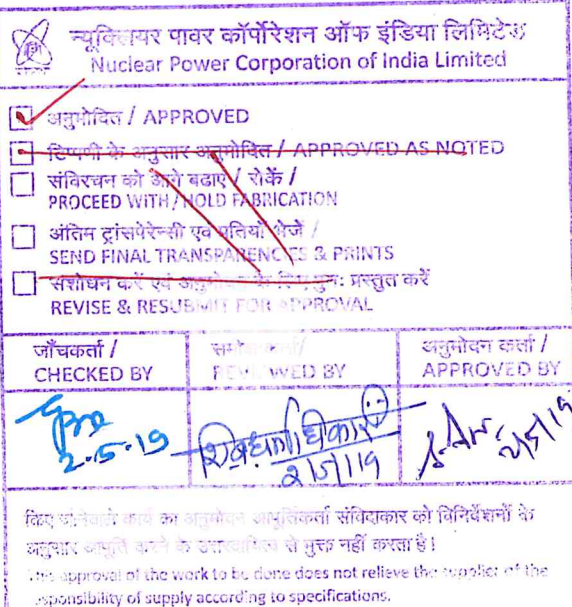 न्यूक्लियर पावर कॉर्पोरेशन ऑफ इंडिया लिमिटेड
Nuclear Power Corporation of India Limited
अनुमोदित / APPROVED
टिप्पणी के अनुसार अनुमोदित / APPROVED AS NOTED
संविरचन को आगे बढाएं / रोकें /
PROCEED WITH / HOLD FABRICATION
अंतिम ट्रांसपेरेन्सी एवं प्रतियाँ भेजें /
SEND FINAL TRANSPARENCIES & PRINTS
संशोधन करें एवं के पुनः प्रस्तुत करें
REVISE & RESUBMIT FOR APPROVAL
जाँचकर्ता /
CHECKED BY
REVIEWED BY
अनुमोदन कर्ता /
APPROVED BY
2-5-19
2/5/19
2/5/19
किए जानेवाले कार्य का अनुमोदन आपूर्तिकर्ता संविदाकार को विनिर्देशनों के
अनुसार आपूर्ति करने के उत्तरदायित्व से मुक्त नहीं करता है।
This approval of the work to be done does not relieve the supplier of the
responsibility of supply according to specifications.